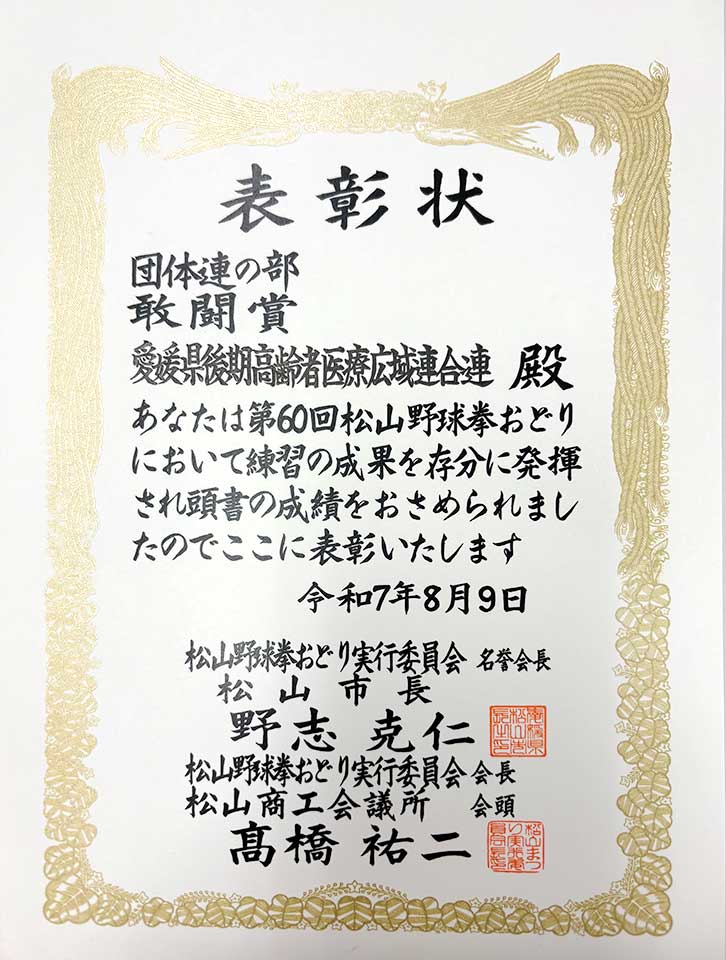 表彰状
団体連の部
敢闘賞
愛媛県後期高齢者医療広域連合連 殿
あなたは第60回松山野球拳おどり
において練習の成果を存分に発揮
され頭書の成績をおさめられまし
たのでここに表彰いたします
令和7年8月9日
松山野球拳おどり実行委員会 名誉会長
松山市長
野志克仁
松山野球拳おどり実行委員会 会長
松山商工会議所 会頭
髙橋祐二